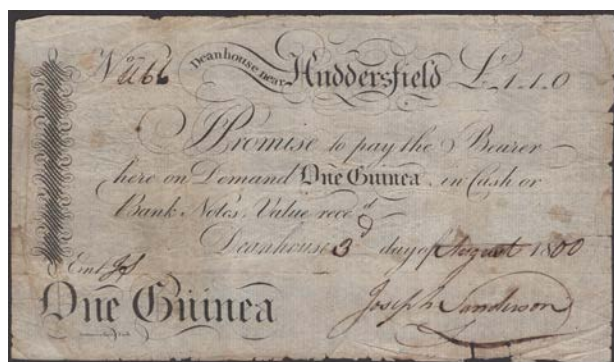 No Deanhouse near Huddersfield £1.1.0
I Promise to pay the Bearer
here on Demand One Guinea in Cash or
Bank Notes. Value recd.
Deanhouse 3d day of August 1800
Entd. Js
One Guinea Joseph Sanderson